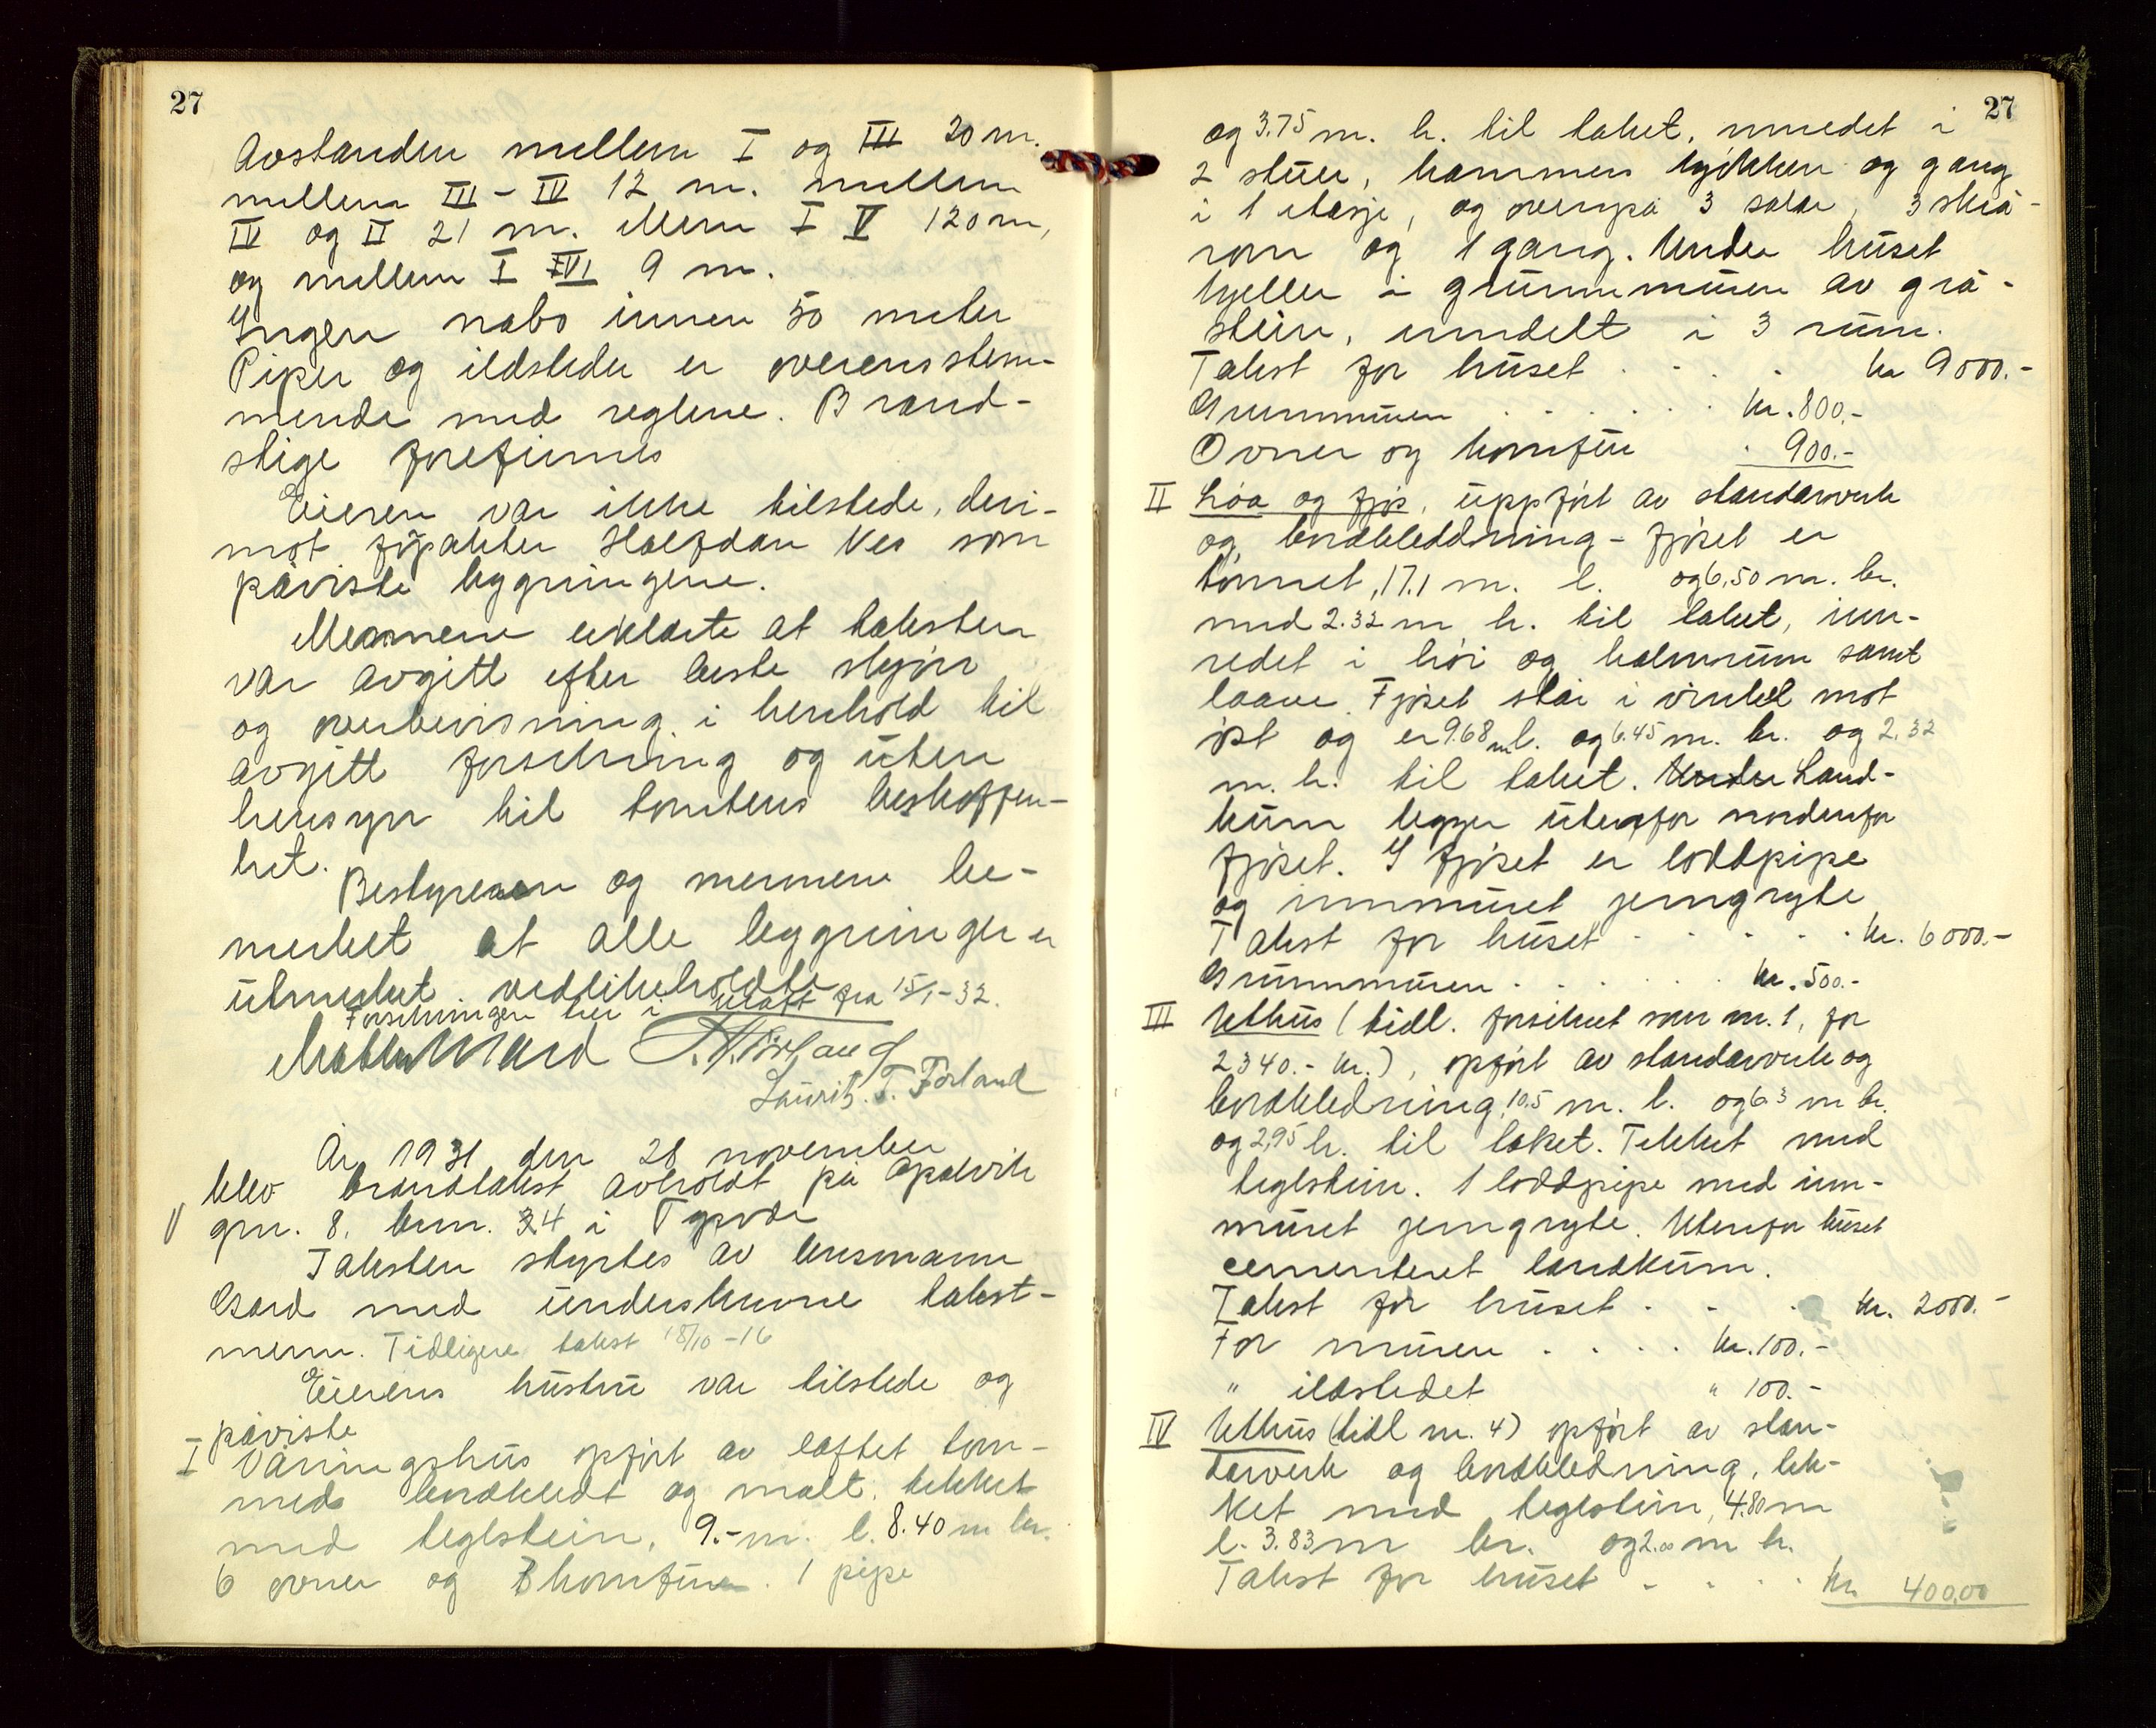 27
Avstanden mellem I og III 20 m.
mellem III - IV 12 m. mellem
IV og II 21 m. Mem I V 120 m,
og mellem I VI 9 m.
Ingen nabo innen 50 meter
Piper og ildsteder er overensstem-
mende med reglene. Brand-
stige forefinnes
Eieren var ikke tilstede, deri-
mot Halfdan Nes som
påviste bygningene.
Mennene erklærte at taksten
var avgitt efter beste skjønn
og overbevisning i henhold til
avgitt forsikring og uten
hensyn til tomtens beskaffen-
het.
Bestyreren og mennene be-
merket at alle bygninger er
utmerket vedlikeholdte
Forsikringen her i kraft fra 15/1-32.
Gard
Laurits. T. Førland
År 1931 den 28 november
blev brandtakst avholdt på Apalvik
V gnr. 8, brnr. 34 i Tysvær
Taksten styrtes av lensmann
Gard med underskrevne takst-
menn. Tidligere takst 18/10-16
Eierens hustru var tilstede og
påviste
I Våningshus opført av laftet tøm-
med bordkledt og malt, tekket
med teglstein, 9.- m. l. 8.40 m br.
6 ovner og komfur. 1 pipe
27
og 3.75 m. h. til taket, innredet i
2 stuer, kammers kjøkken og gang
i 1 etasje, og ovenpå 3 salar, 3 skrå-
rom og 1 gang. Under huset
kjeller i grunnmuren av grå-
stein, inndelt i 3 rum.
Takst for huset . . . . kr 9000.-
Grunnmuren . . . . . . kr. 800.-
Ovner og komfur . 900.-
II Løa og fjøs, uppført av standarverk
og bordkleddning - fjøset er
tømret, 17.1 m. l. og 6,50 m. br.
med 2.32 m h. til taket, inn-
redet i høi og halmrum samt
laave. Fjøset står i vinkel mot
øst og er 9.68 m l. og 6.45 m. br. og 2.32
m. h. til taket. Under Land-
kum ligger utenfor nordenfor
fjøset. I fjøset er loddpipe
og innmuret jerngryte
Takst for huset . . . . . kr. 6000.-
Grunnmuren . . . . . kr. 500.-
III Uthus (tidl. forsikret som nr. 1, for
2340.- kr.), opført av standarverk og
bordkledning, 10.5 m. l. og 6.3 m br.
og 2,95 h. til taket. Tekket med
teglstein. 1 loddpipe med inn-
muret jerngryte. Utenfor huset
cementeret landkum.
Takst for huset . . . kr. 2000.-
For muren . . . . kr. 100.-
" ildstedet " 100.-
IV Uthus (tidl nr. 4) opført av stan-
darverk og bordkledning, tek-
ket med teglstein, 4.80 m
l. 3.83 m br. og 2.00 m h.
Takst for huset . . . . kr 400,00